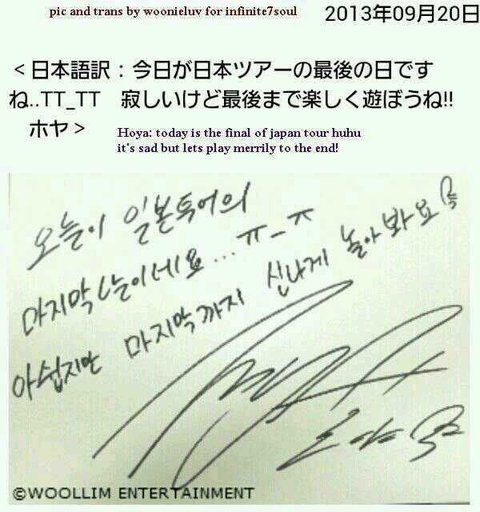 pic and trans by woonieluv for infinite7soul
2013年09月20日
<日本語訳：今日が日本ツアーの最後の日です
ね..TT_TT 寂しいけど最後まで楽しく遊ぼうね!!
ホヤ>
Hoya: today is the final of japan tour huhu
it's sad but lets play merrily to the end!
오늘이 일본투어의
마지막날이네요... ㅠ_ㅠ
아쉽지만 마지막까지 신나게 놀아봐요
호야
©WOOLLIM ENTERTAINMENT